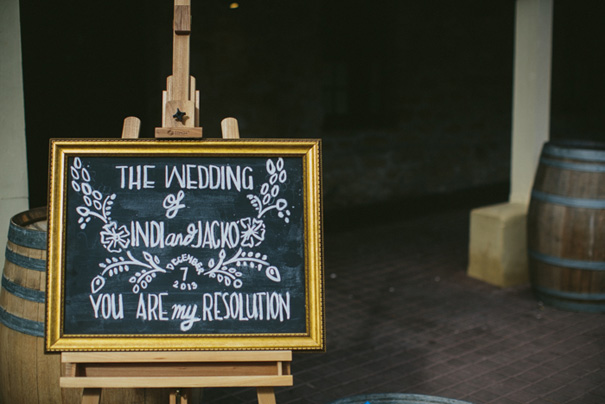 THE WEDDING
of
INDI and JACKO
DECEMBER
7
2013
YOU ARE my RESOLUTION